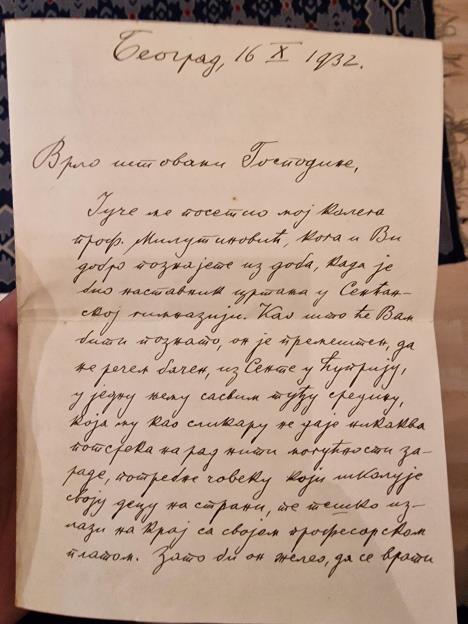 Београд, 16 X 1932.
Врло штовани Господине,
Јуче ме посетио мој колега
проф. Милутиновић, кога и Ви
добро познајете из доба, када је
био наставник цртања у Сенћан-
ској гимназији. Као што ће Вам
бити познато, он је премештен, да
не речем бачен, из Сенте у Ћуприју,
у једну њему сасвим туђу средину,
која му као сликару не даје никаква
потстрека на рад нити могућности за-
раде, потребне човеку који школује
своју децу на страни, те тешко из-
лази на крај са својом професорском
платом. Зато би он желео, да се врати